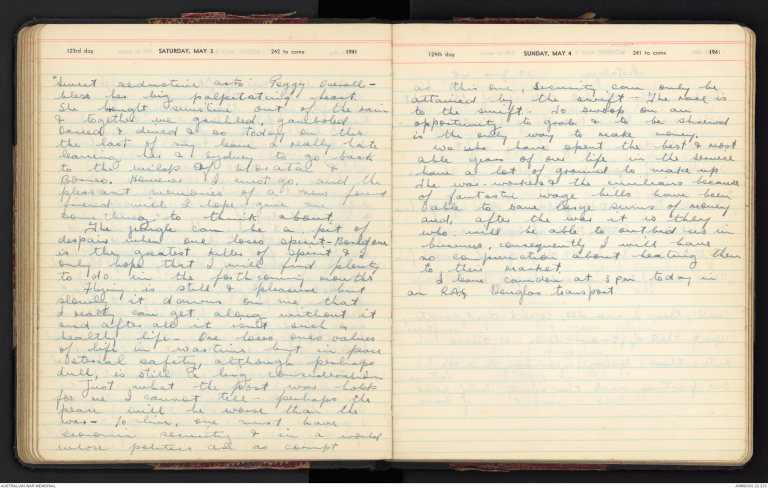 123rd day SATURDAY, MAY 3 242 to come 1941
"Sweet seductive arts" Peggy Overall -
bless her big palpitating heart.
She bought sunshine out of the rain
& together we gambled, gamboled
Danced & dined & so today on this
the last of my leave I really hate
leaving her & Sydney to go back
to the milops of Morotai &
Borneo. However I must go, and the
pleasant memories of a new found
friend will I hope give me
something to think about.
The jungle can be a pit of
despair when one loses spirit - Boredom
is the greatest killer of spirit & I
only hope that I will find plenty
to do in the forthcoming months
Flying is still a pleasure but
slowly it dawns on me that
I really can get along without it
and after all it isn't such a
healthy life - One loses ones values
of life in wartime but in peace
eternal safety, although perhaps
dull, is still a big consideration
Just what the post war holds
for me I cannot tell - perhaps the
peace will be worse than the
war - To live, one must have
economic security & in a world
whose politics are as corrupt
124th day SUNDAY, MAY 4 241 to come 1941
as this one, security can only be
attained by the swift - The race is
to the swift. To swoop on an
opportunity to grab & to be shrewd
is the only way to make money.
We who have spent the best & most
able years of our life in the service
have a lot of ground to make up
The war-workers & the civilians because
of fantastic wage bills have been
able to save large sums of money
and, after the war it is they
who will be able to outbid us in
business, consequently I will have
no compunction about beating them
to their market
I leave Camden at 3 pm today in
an RAF Douglas transport
AUSTRALIAN WAR MEMORIAL